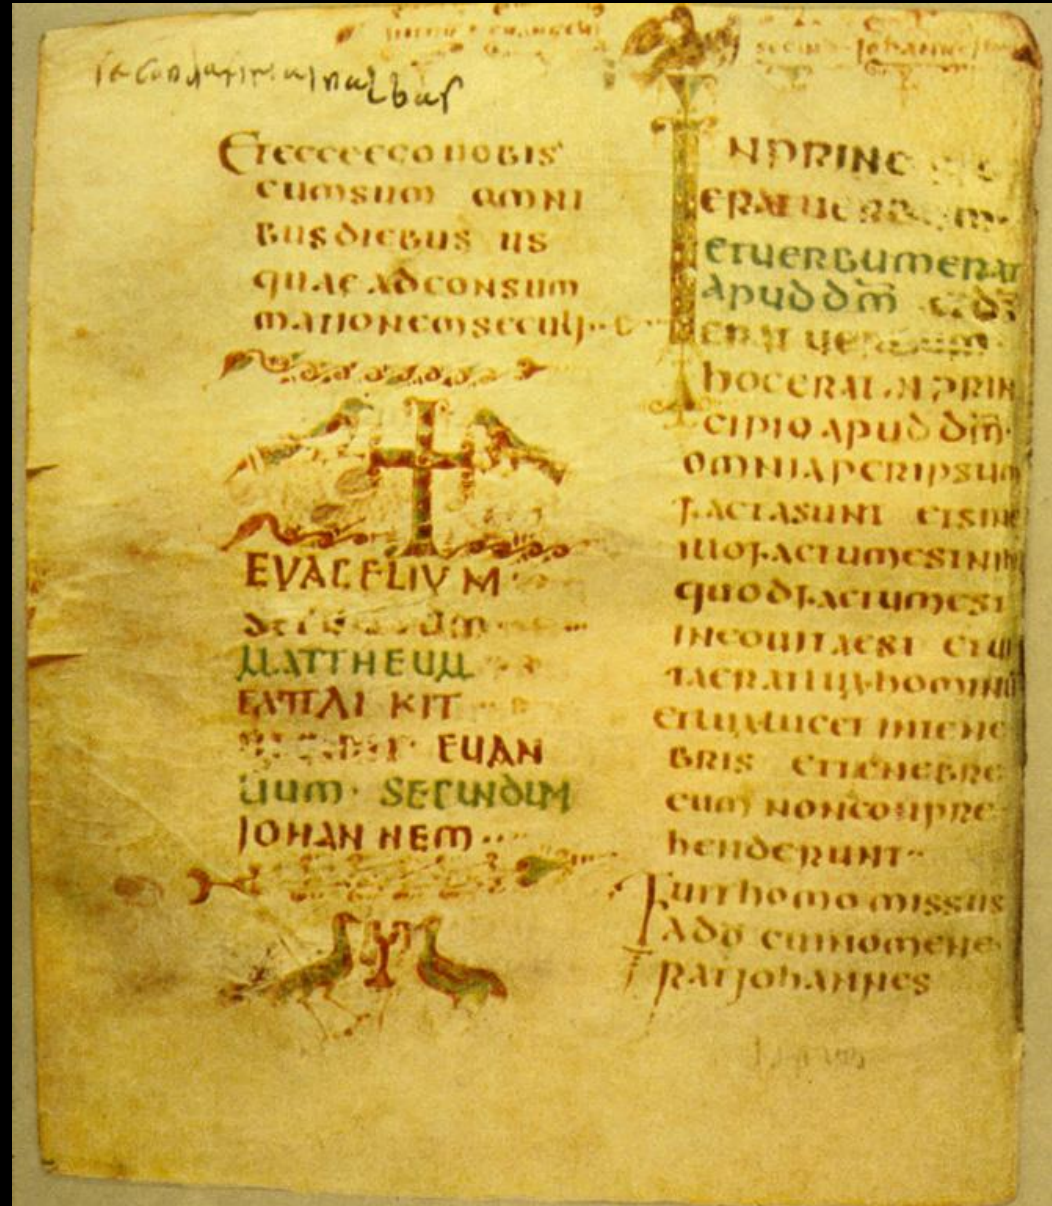 secun Iohanne
Et ecce eco uobis
cumsum omni
bus diebus us
quae ad consum
mationem seculi
EVANGELIUM
MATTHEUM
EXΠΛI KIT
EUAN
lium · SECUNDUM
JOHANNEM
IN PRINC
ERAT UERBUM
ET UERBUM ERAT
APUD DM̄ DS̄
ERAT UERBUM
hoc erat in prin
cipio apud dm̄
omnia per ipsum
facta sunt et sine
illo factum est nihi
quod factum est
in eo uita est et ui
ta erat lux hominu
et lux lucet in tene
bris et tenebre
eum non conpre
henderunt
Fuit homo missus
a dō cui nomen e
rat johannes